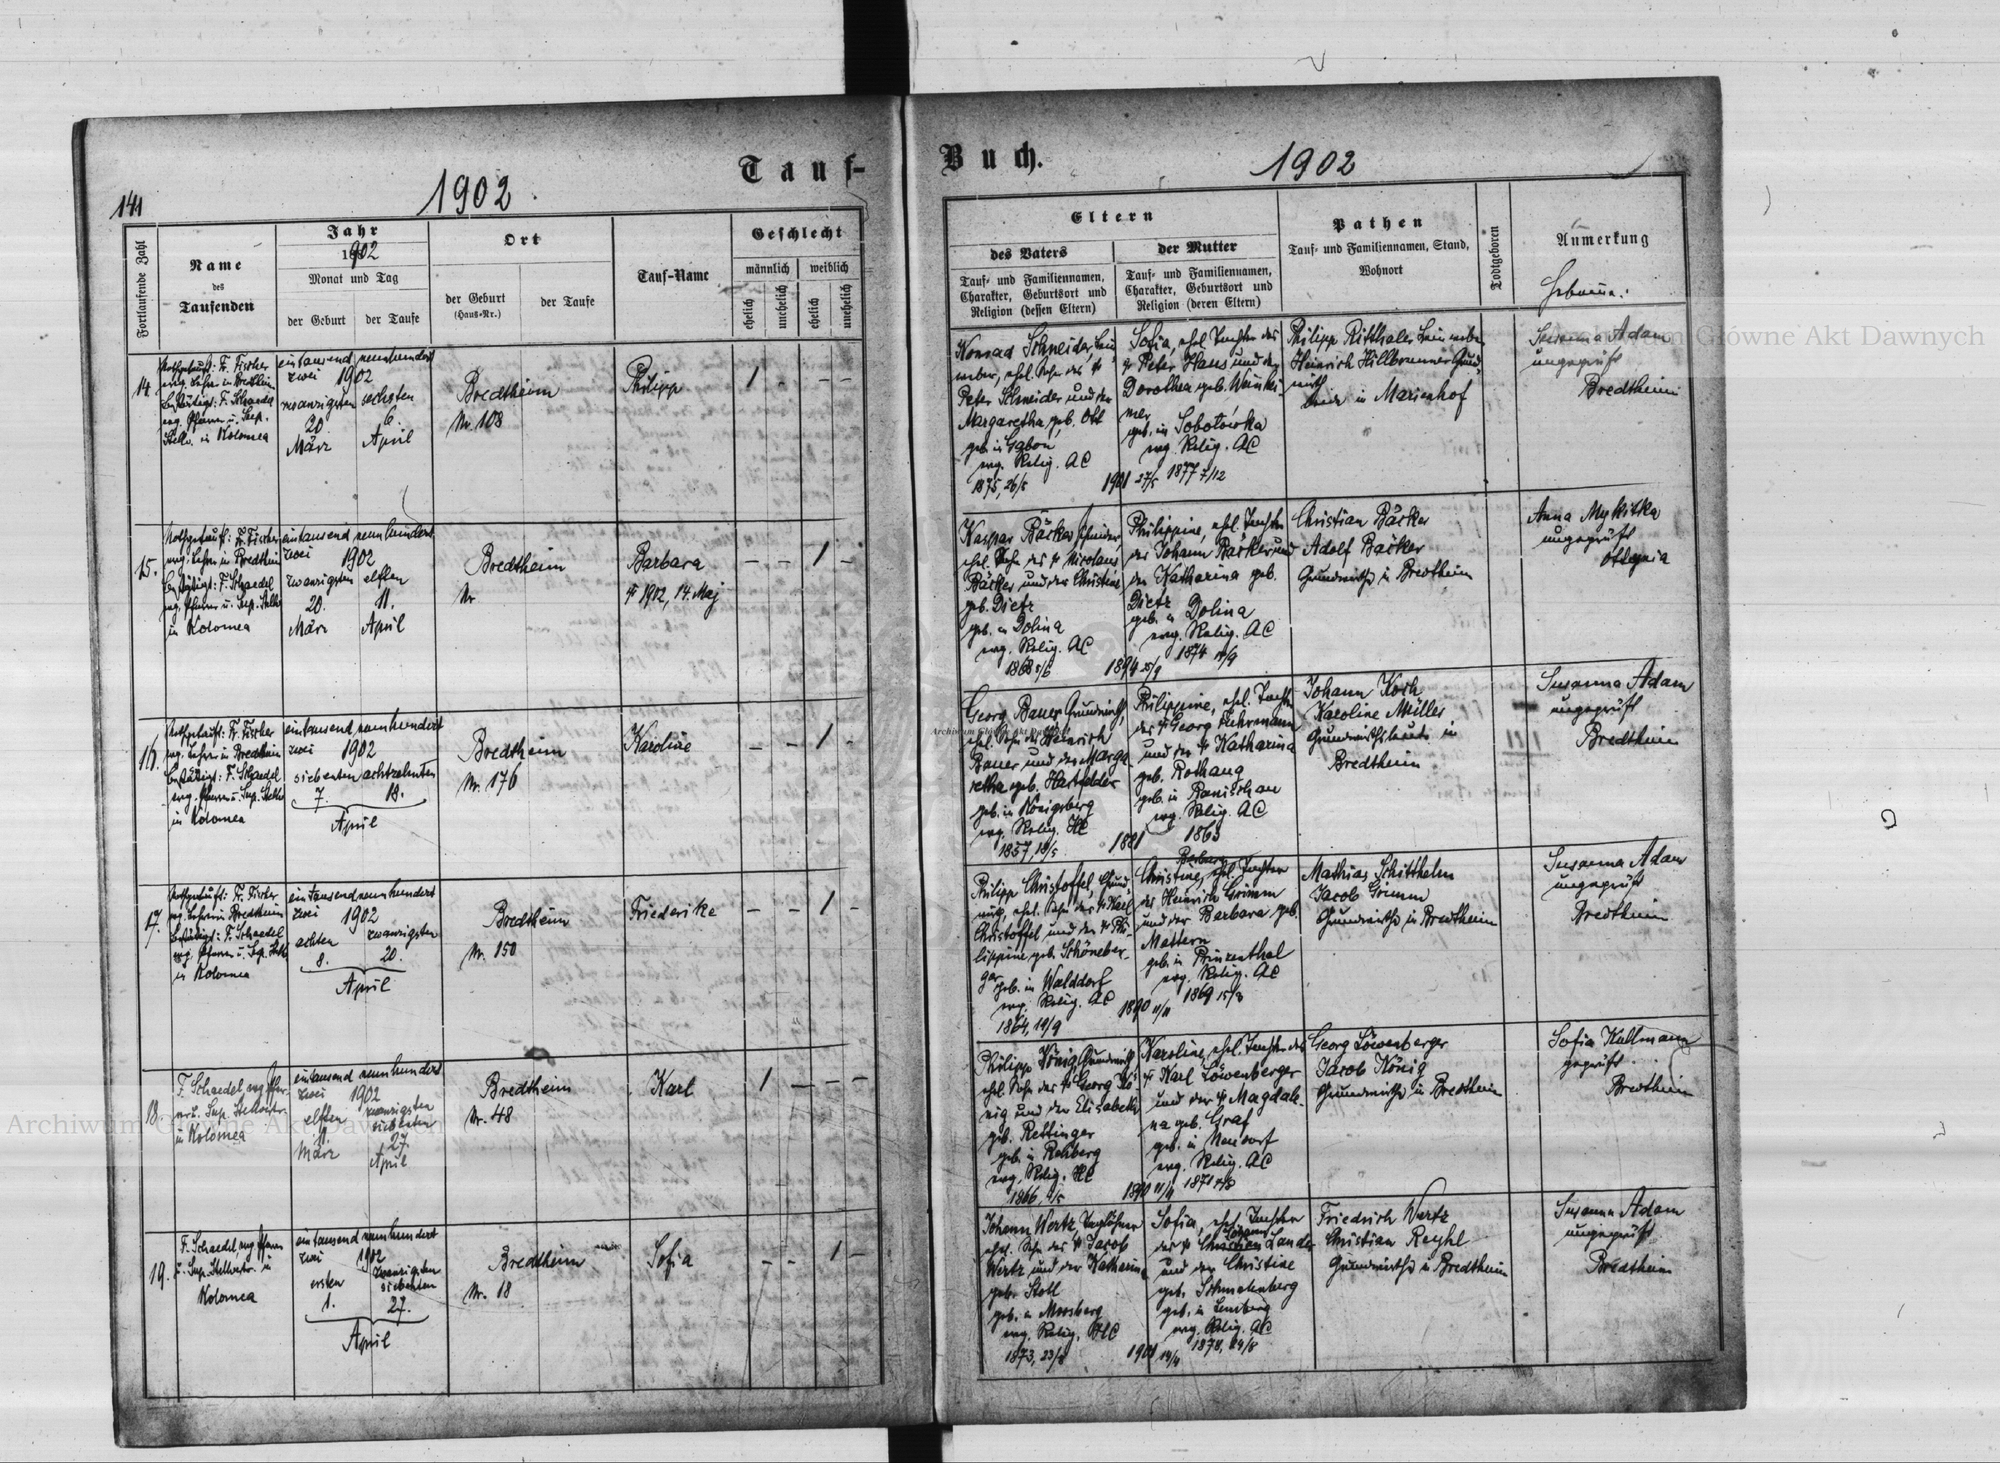 Tauf-
141
1902
Fortlaufende Zahl
Name
des
Taufenden
Jahr
1902
Monat und Tag
der Geburt
der Taufe
Ort
der Geburt
(Haus-Nr.)
der Taufe
Tauf-Name
Geschlecht
männlich
weiblich
ehelich
unehelich
ehelich
unehelich
14.
Nothgetauft: Fr. Fischer
evg. Lehrer in Bredtheim
Bestätigt: F. Schaedel
evg. Pfarrer u. Sup.
Stellv. in Kolomea
eintausend neunhundert
zwei 1902
zwanzigsten
20
März
sechsten
6.
April
Bredtheim
Nr. 108
Philipp
1 - - -
15.
Nothgetauft: Fr. Fischer
evg. Lehrer in Bredtheim
Bestätigt: F. Schaedel
evg. Pfarrer u. Sup. Stellv.
in Kolomea
eintausend neunhundert
zwei 1902
zwanzigsten
20.
März
elften
11.
April
Bredtheim
Nr
Barbara
1902, 14 Maj
- - 1 -
16.
Nothgetauft: Fr. Fischer
evg. Lehrer in Bredtheim
Bestätigt: F. Schaedel
evg. Pfarrer u. Sup. Stellv.
in Kolomea
eintausend neunhundert
zwei 1902
siebenten achtzehnten
7. 18.
April
Bredtheim
Nr. 176
Karoline
- - 1 -
17.
Nothgetauft: Fr. Fischer
evg. Lehrer in Bredtheim
Bestätigt: F. Schaedel
evg. Pfarrer u. Sup. Stellv.
in Kolomea
eintausend neunhundert
zwei 1902
achten zwanzigsten
8. 20.
April
Bredtheim
Nr. 150
Friederike
- - 1 -
18.
F. Schaedel evg. Pfar-
rer u. Sup. Stellvertr.
in Kolomea
eintausend neunhundert
zwei 1902
elften
11.
März
zwanzigsten
siebenten
27.
April
Bredtheim
Nr. 48
Karl
1 - - -
19.
F. Schaedel evg. Pfarrer
u. Sup. Stellvertr. in
Kolomea
eintausend neunhundert
zwei 1902
ersten
1.
zwanzigsten
siebenten
27.
April
Bredtheim
Nr. 18
Sofia
- - 1 -
Buch.
1902
Eltern
des Vaters
Tauf- und Familiennamen,
Charakter, Geburtsort und
Religion (dessen Eltern)
der Mutter
Tauf- und Familiennamen,
Charakter, Geburtsort und
Religion (deren Eltern)
Pathen
Tauf- und Familiennamen, Stand,
Wohnort
Todtgeboren
Anmerkung
Hebamme:
Konrad Schneider, Lein
weber, ehel. Sohn des
Peter Schneider und der
Margaretha geb. Ott
geb. in
evg. Relig. AC
1875, 26/5
1901 27/5
Sofia, ehel. Tochter des
Peter Haus und der
Dorothea geb. Weinhei-
mer
geb. in Sobotówka
evg. Relig. AC
1877 7/12
Philipp Ritthaler Leinweber
Heinrich Hillbrunner Grund-
wirth
beide in Marienhof
Susanna Adam
ungeprüft
Bredtheim
Kaspar Bäcker
ehel. Sohn des Nicolaus
Bäcker und der Christine
geb. Dietz
geb. in Dolina
evg. Relig. AC
1868 5/6
1894 25/9
Philippine, ehel. Tochter
des Johann Bäcker und
der Katharina geb.
Dietz
geb. in Dolina
evg. Relig. AC
1874
Christian Bäcker
Adolf Bäcker
Grundwirthe in Bredtheim
Anna Mykitka
ungeprüft
Ottynia
Georg Bauer Grundwirth,
ehel. Sohn des Heinrich
Bauer und der Marga
retha geb. Hartfelder
geb. in Königsberg
evg. Relig. HC
1857, 18/5
1881
Philippine, ehel. Tochter
des Georg Fuhrmann
und der Katharina
geb. Rothaug
geb. in Ranischau
evg. Relig. AC
1863
Johann Koch
Karoline Müller
Grundwirthsleute in
Bredtheim
Susanna Adam
ungeprüft
Bredtheim
Philipp Christoffel Grund-
wirth, ehel. Sohn des Karl
Christoffel und der Phi-
lippine geb. Schöneber-
ger
geb. in Walddorf
evg. Relig. AC
1864, 19/9
1890 11/11
Barbara
Christine, ehel. Tochter
des Heinrich Grimm
und der Barbara geb.
Mattern
geb. in Prinzenthal
evg. Relig. AC
1869 15/8
Mathias Schitthelm
Jacob Grimm
Grundwirthe in Bredtheim
Susanna Adam
ungeprüft
Bredtheim
Philipp König Grundwirth,
ehel. Sohn des Georg Kö-
nig und der Elisabeth
geb. Rettinger
geb. in Rehberg
evg. Relig. HC
1866
1890 11/11
Karoline, ehel. Tochter des
Karl Löwenberger
und der Magdale-
na geb. Graf
geb. in Neudorf
evg. Relig. AC
1871
Georg Löwenberger
Jacob König
Grundwirthe in Bredtheim
Sofia Kullmann
geprüft
Bredtheim
Johann Wertz Taglöhner
ehel. Sohn des Jacob
Wertz und der Katharina
geb. Stoll
geb. in Moosberg
evg. Relig. HC
1873, 23/8
1901 14/4
Sofia, ehel. Tochter
Johann
des Christian Lander
und der Christine
geb. Schmalenberg
geb. in Lemberg
evg. Relig. AC
1878, 24/8
Friedrich Wertz
Christian Reyhl
Grundwirthe in Bredtheim
Susanna Adam
ungeprüft
Bredtheim
Archiwum Główne Akt Dawnych
Archiwum Główne Akt Dawnych
Archiwum Główne Akt Dawnych